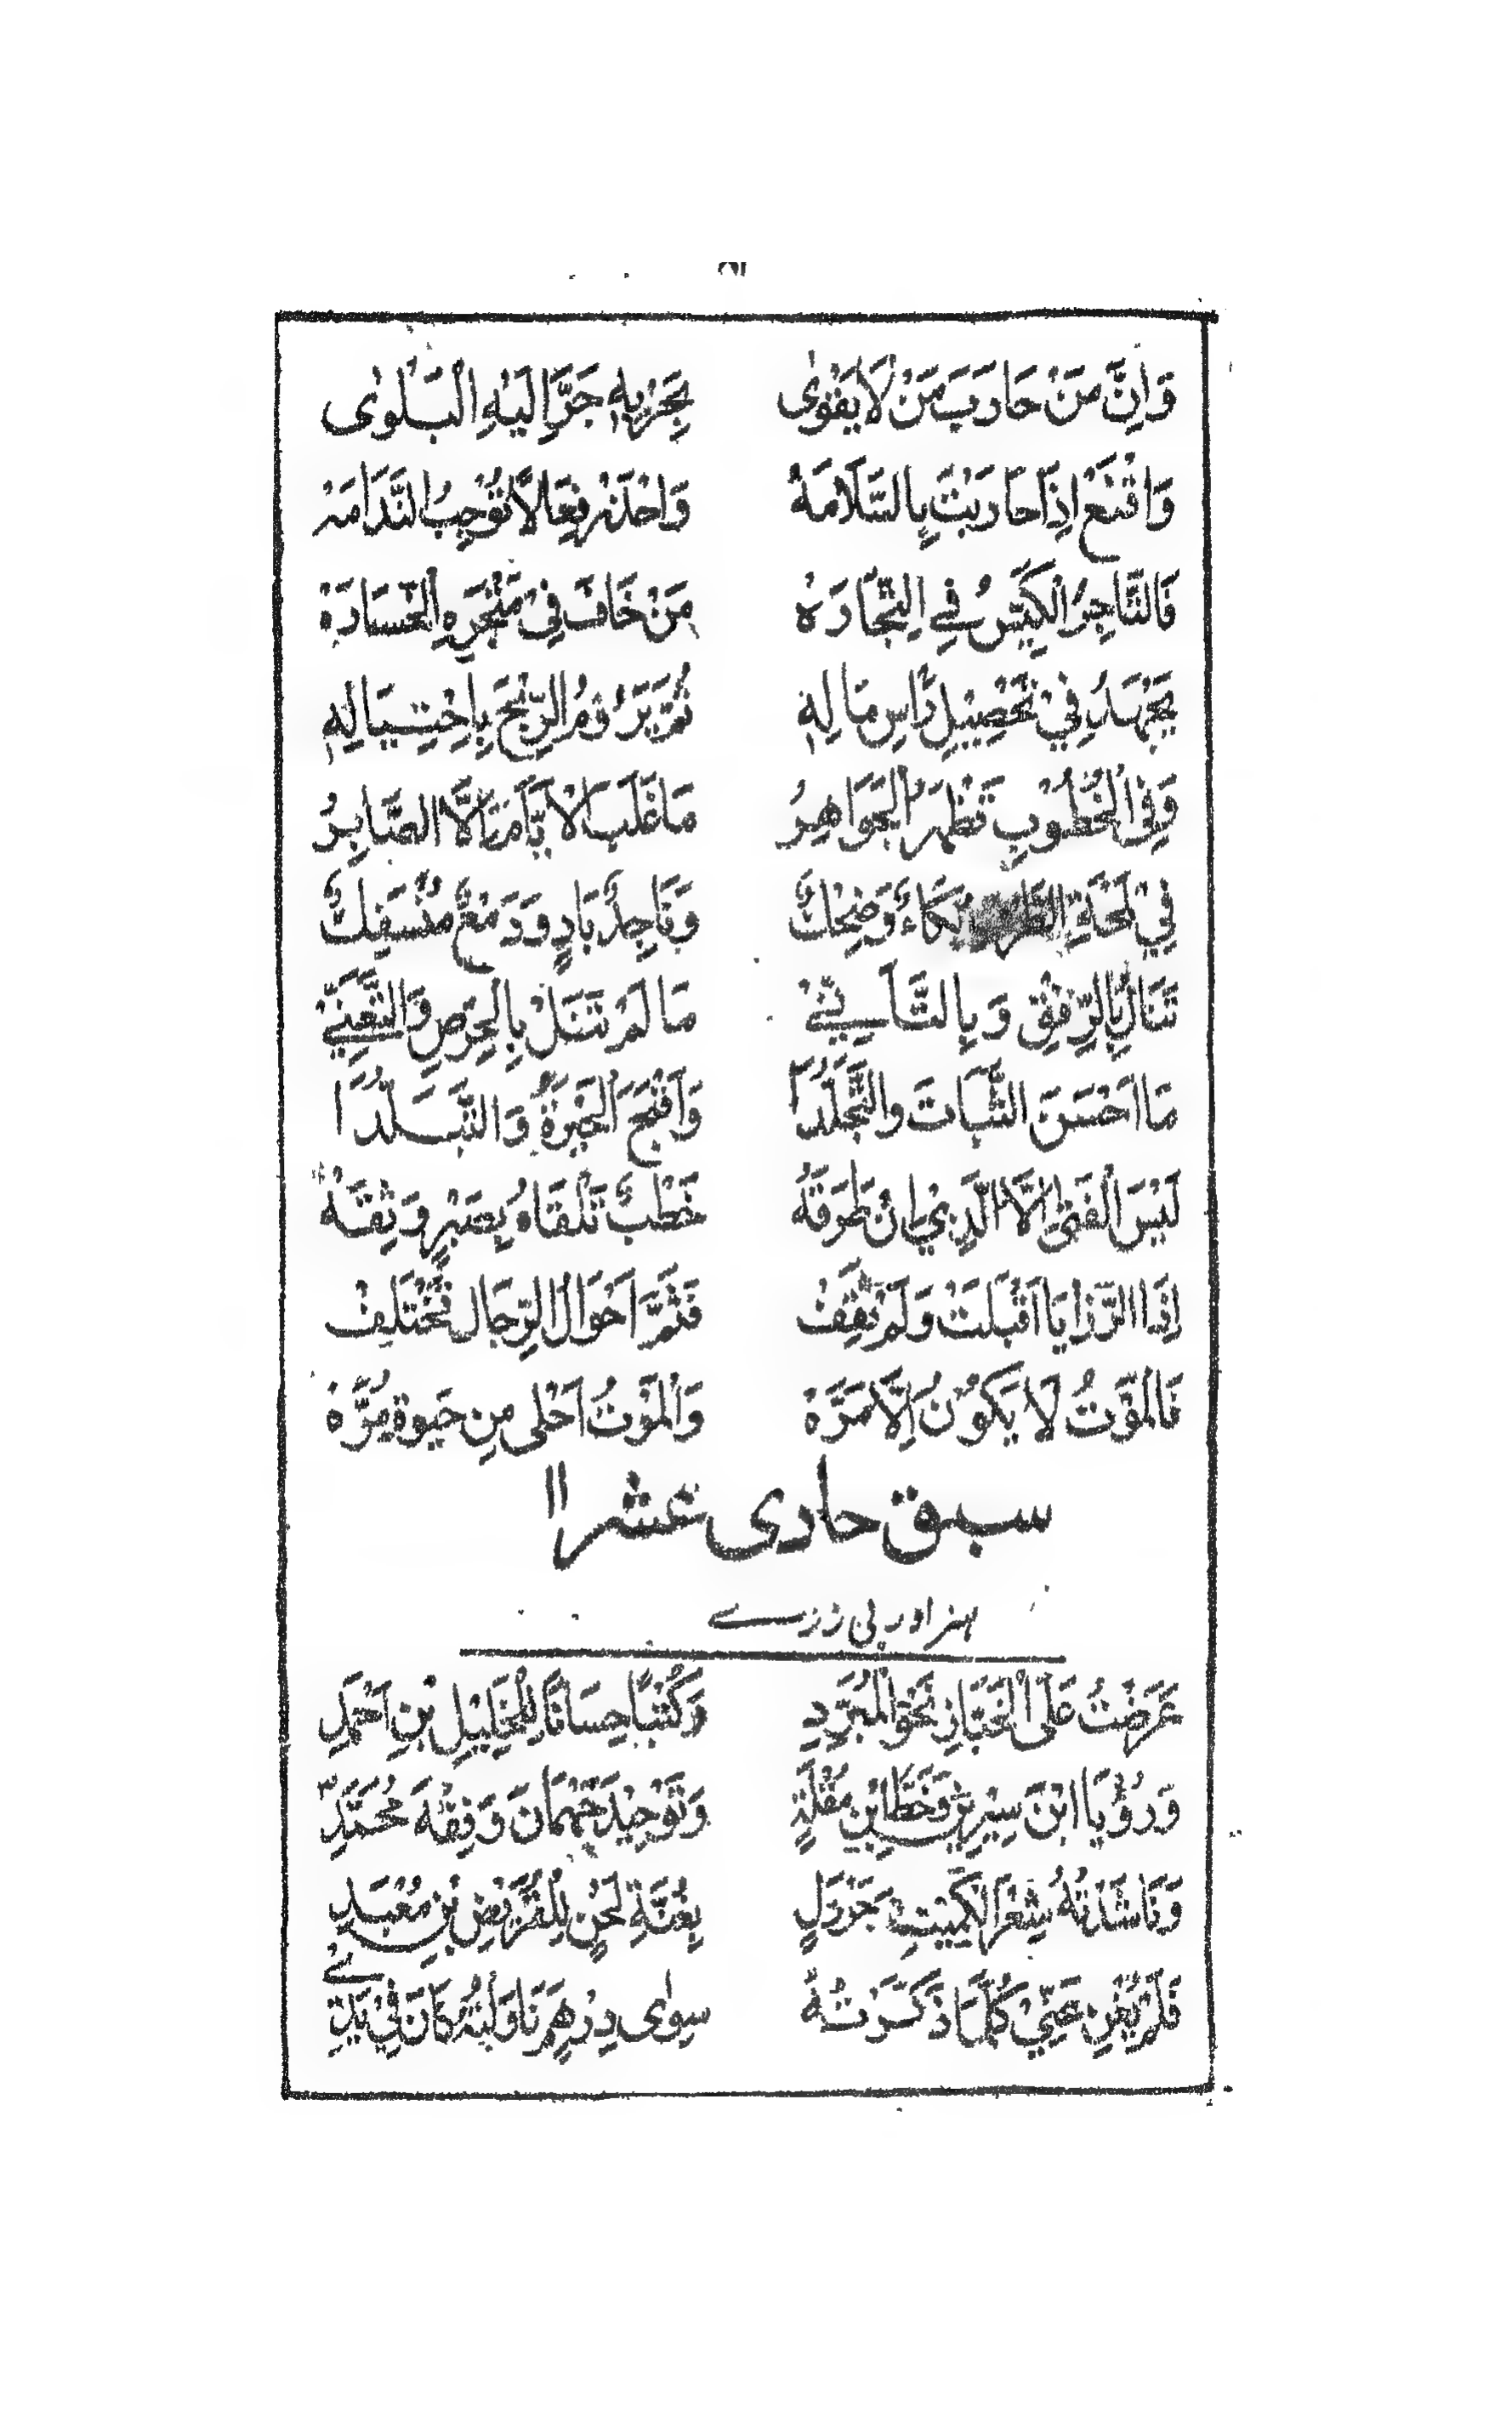 ٥١
وَاِنَّ مَنْ حَارَبَ مَنْ لَا يَقْوٰى بِحَرْبِهٖ جَرَّ اِلَيْهِ الْبَلْوٰى
وَاقْنَعْ اِذَا حَارَبْتَ بِالسَّلَامَهْ وَاحْذَرْ فِعَالًا تُوْجِبُ النَّدَامَهْ
فَالتَّاجِرُ الْكَيِّسُ فِي التِّجَارَهْ مَنْ خَافَ فِيْ مَتْجَرِهِ الْخَسَارَهْ
يَجْهَدُ فِيْ تَحْصِيْلِ رَاسِ مَالِهٖ ثُمَّ يَرُوْمُ الرِّبْحَ بِاِحْتِيَالِهٖ
وَفِى الْخُطُوْبِ تَظْهَرُ الْجَوَاهِرُ مَا غَلَبَ الْاَيَّامَ اِلَّا الصَّابِرُ
فِيْ لَمْحَةِ بُكَاءٌ وَضِحْكٌ وَنَاجِذٌ بَادٍ وَدَمْعٌ مُنْسَفِكٌ
تَنَالُ بِالرِّفْقِ وَبِالتَّأَنِّيْ مَا لَمْ تَنَلْ بِالْحِرْصِ وَالتَّعَنِّيْ
مَا اَحْسَنَ الثَّبَاتَ وَالتَّجَلُّدَا وَاَقْبَحَ الْحَيْرَةَ وَالتَّبَلُّدَا
لَيْسَ الْفَتٰى اِلَّا الَّذِيْ اِنْ طَرَقَهْ خَطْبٌ تَلْقَاهُ بِصَبْرٍ وَثِقَهْ
اِذَا الرَّزَايَا اَقْبَلَتْ وَلَمْ تَقِفْ فَثَمَّ اَحْوَالُ الرِّجَالِ تَخْتَلِفْ
فَالْمَوْتُ لَا يَكُوْنُ اِلَّا مَرَّهْ وَالْمَوْتُ اَحْلٰى مِن حَيٰوةٍ مُرَّهْ
سبق حادى عشر ١١
عَرَضْتُ عَلَى الْخَبَّازِ نَحْوَ الْمُبَرَّدِ وَكُتْبًا حِسَانًا لِلْخَلِيْلِ بْنِ اَحْمَدِ
وَرُؤْيَا ابْنِ سِيْرِيْنَ وَخَطَّ ابْنِ مُقْلَةٍ وَتَوْحِيْدَ جَهْمَانَ وَفِقْهَ مُحَمَّدِ
وَنَاشَدْتُهُ شِعْرَ الْكُمَيْتِ وَجَرْوَلٍ بِغُنَّةِ لَحْنٍ لِلْقَرِيْضِ بْنِ مَعْبَدِ
فَلَمْ يُغْنِ عَنِّيْ كُلَّمَا ذَكَرْتُهُ سِوٰى دِرْهَمٍ نَاوَلْتُهُ كَانَ فِيْ يَدِيْ